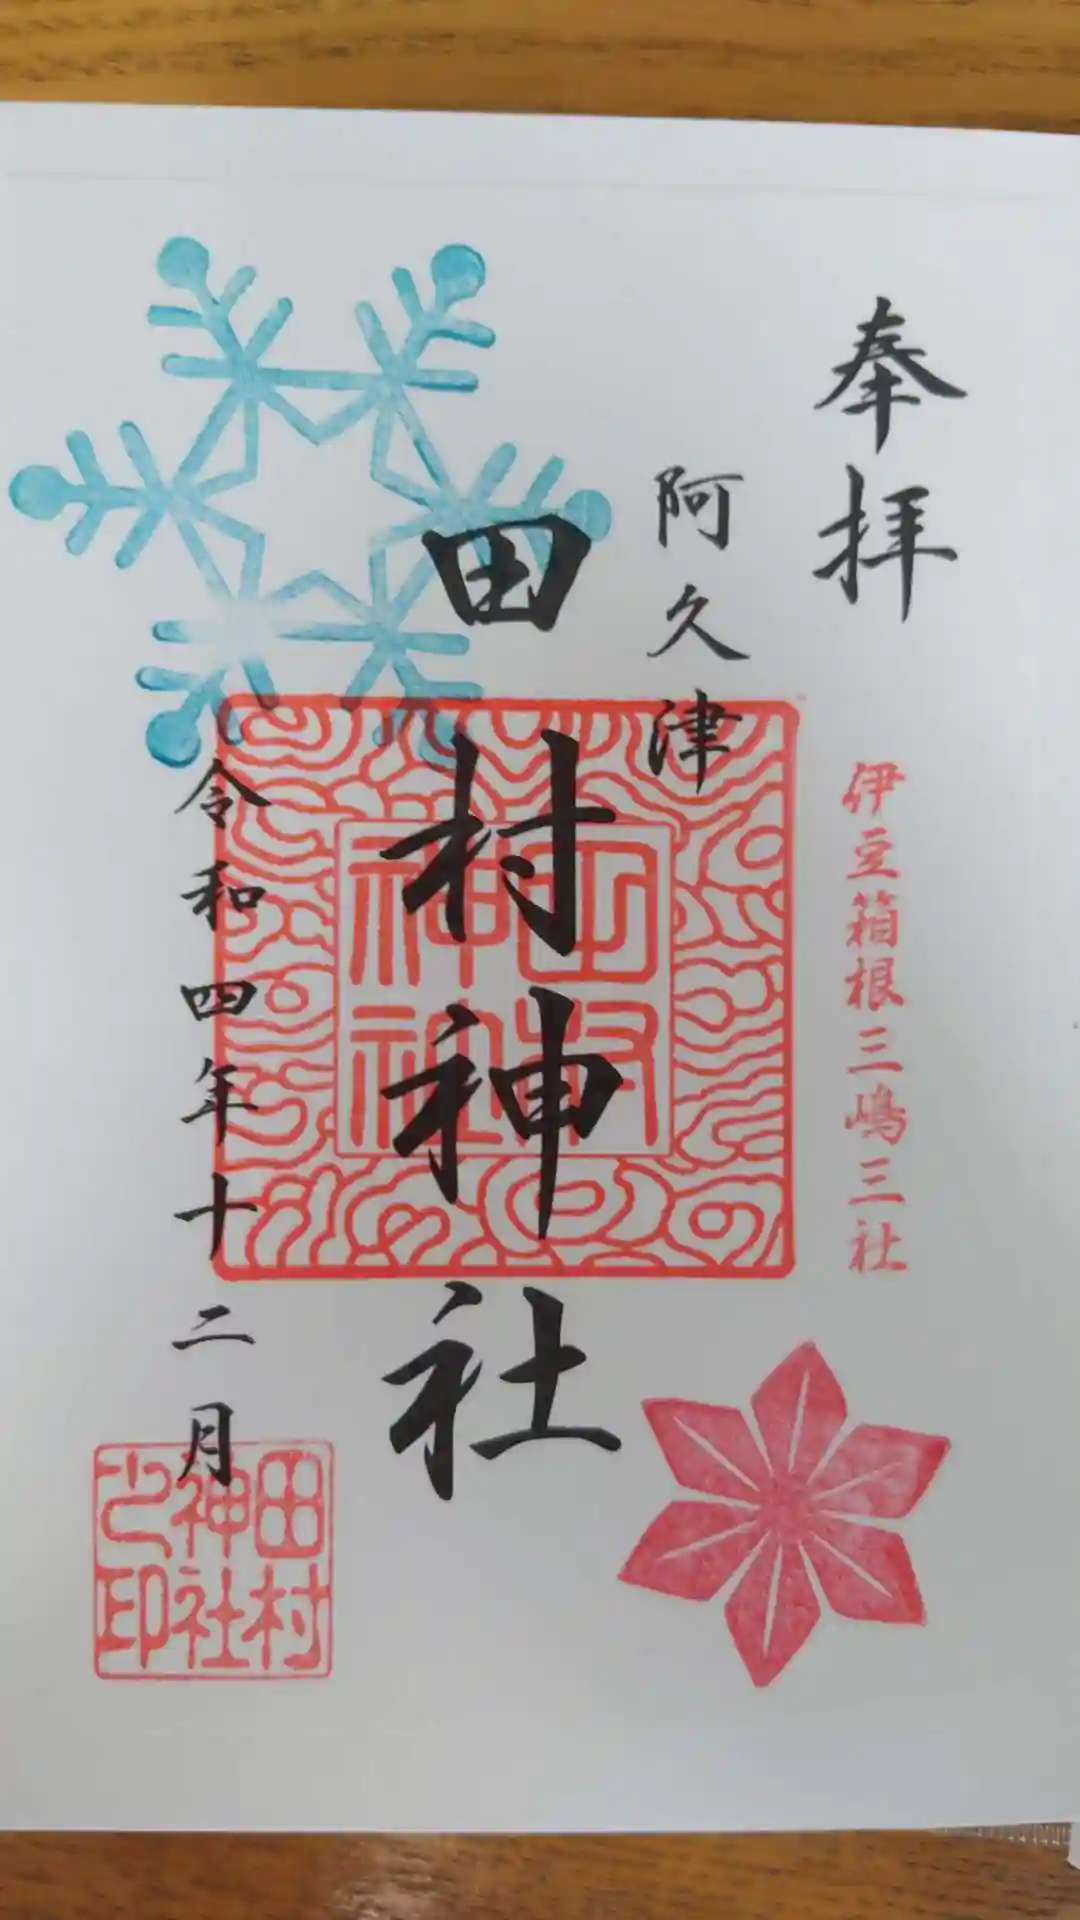 奉拝
伊豆箱根三嶋三社
阿久津
田村神社
田村神社
令和四年十二月
田村神社之印